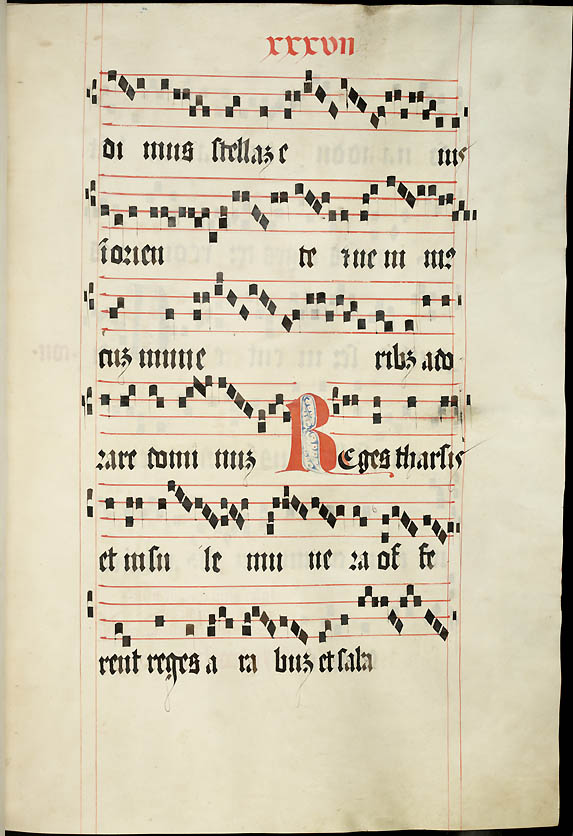 xxxvii
di mus stellaz e ius
ī orien te et ve ni mus
cuz mune ribz ado
rare domi nuz Reges tharsis
et insu le mu ne ra of fe
rent reges a ra buz et saba